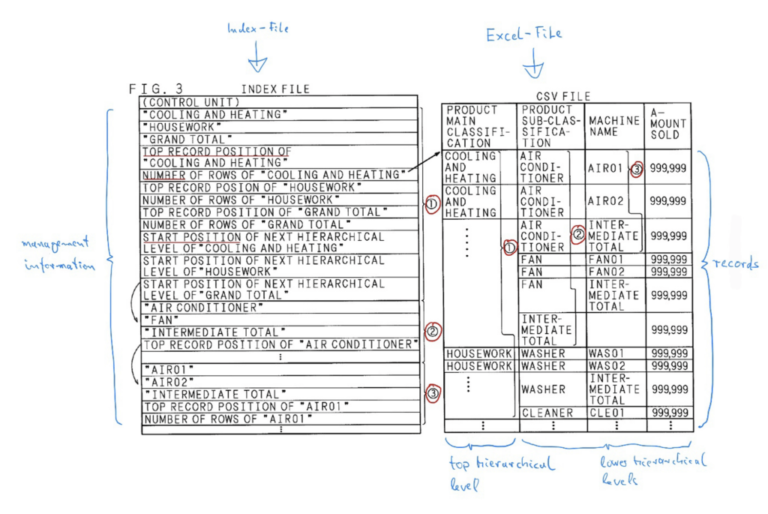 Index-File
Excel-File
FIG. 3
INDEX FILE
(CONTROL UNIT)
"COOLING AND HEATING"
"HOUSEWORK"
"GRAND TOTAL"
TOP RECORD POSITION OF
"COOLING AND HEATING"
NUMBER OF ROWS OF "COOLING AND HEATING"
TOP RECORD POSION OF "HOUSEWORK"
NUMBER OF ROWS OF "HOUSEWORK"
TOP RECORD POSITION OF "GRAND TOTAL"
NUMBER OF ROWS OF "GRAND TOTAL"
START POSITION OF NEXT HIERARCHICAL
LEVEL OF "COOLING AND HEATING"
START POSITION OF NEXT HIERARCHICAL
LEVEL OF "HOUSEWORK"
START POSITION OF NEXT HIERARCHICAL
LEVEL OF "GRAND TOTAL"
"AIR CONDITIONER"
"FAN"
"INTERMEDIATE TOTAL"
TOP RECORD POSITION OF "AIR CONDITIONER"
⋮
"AIR01"
"AIR02"
"INTERMEDIATE TOTAL"
TOP RECORD POSITION OF "AIR01"
NUMBER OF ROWS OF "AIR01"
⋮
management
information
①
②
③
CSV FILE
PRODUCT
MAIN
CLASSIFI-
CATION
PRODUCT
SUB-CLAS-
SIFICA-
TION
MACHINE
NAME
A-
MOUNT
SOLD
COOLING
AND
HEATING
AIR
CONDI-
TIONER
AIR01
③
999,999
COOLING
AND
HEATING
AIR
CONDI-
TIONER
AIR02
999,999
⋮
①
AIR
CONDI-
TIONER
②
INTER-
MEDIATE
TOTAL
999,999
FAN
FAN01
999,999
FAN
FAN02
999,999
FAN
INTER-
MEDIATE
TOTAL
999,999
INTER-
MEDIATE
TOTAL
999,999
HOUSEWORK
WASHER
WAS01
999,999
HOUSEWORK
WASHER
WAS02
999,999
⋮
WASHER
INTER-
MEDIATE
TOTAL
999,999
CLEANER
CLE01
999,999
⋮
⋮
⋮
records
top hierarchical
level
lower hierarchical
levels